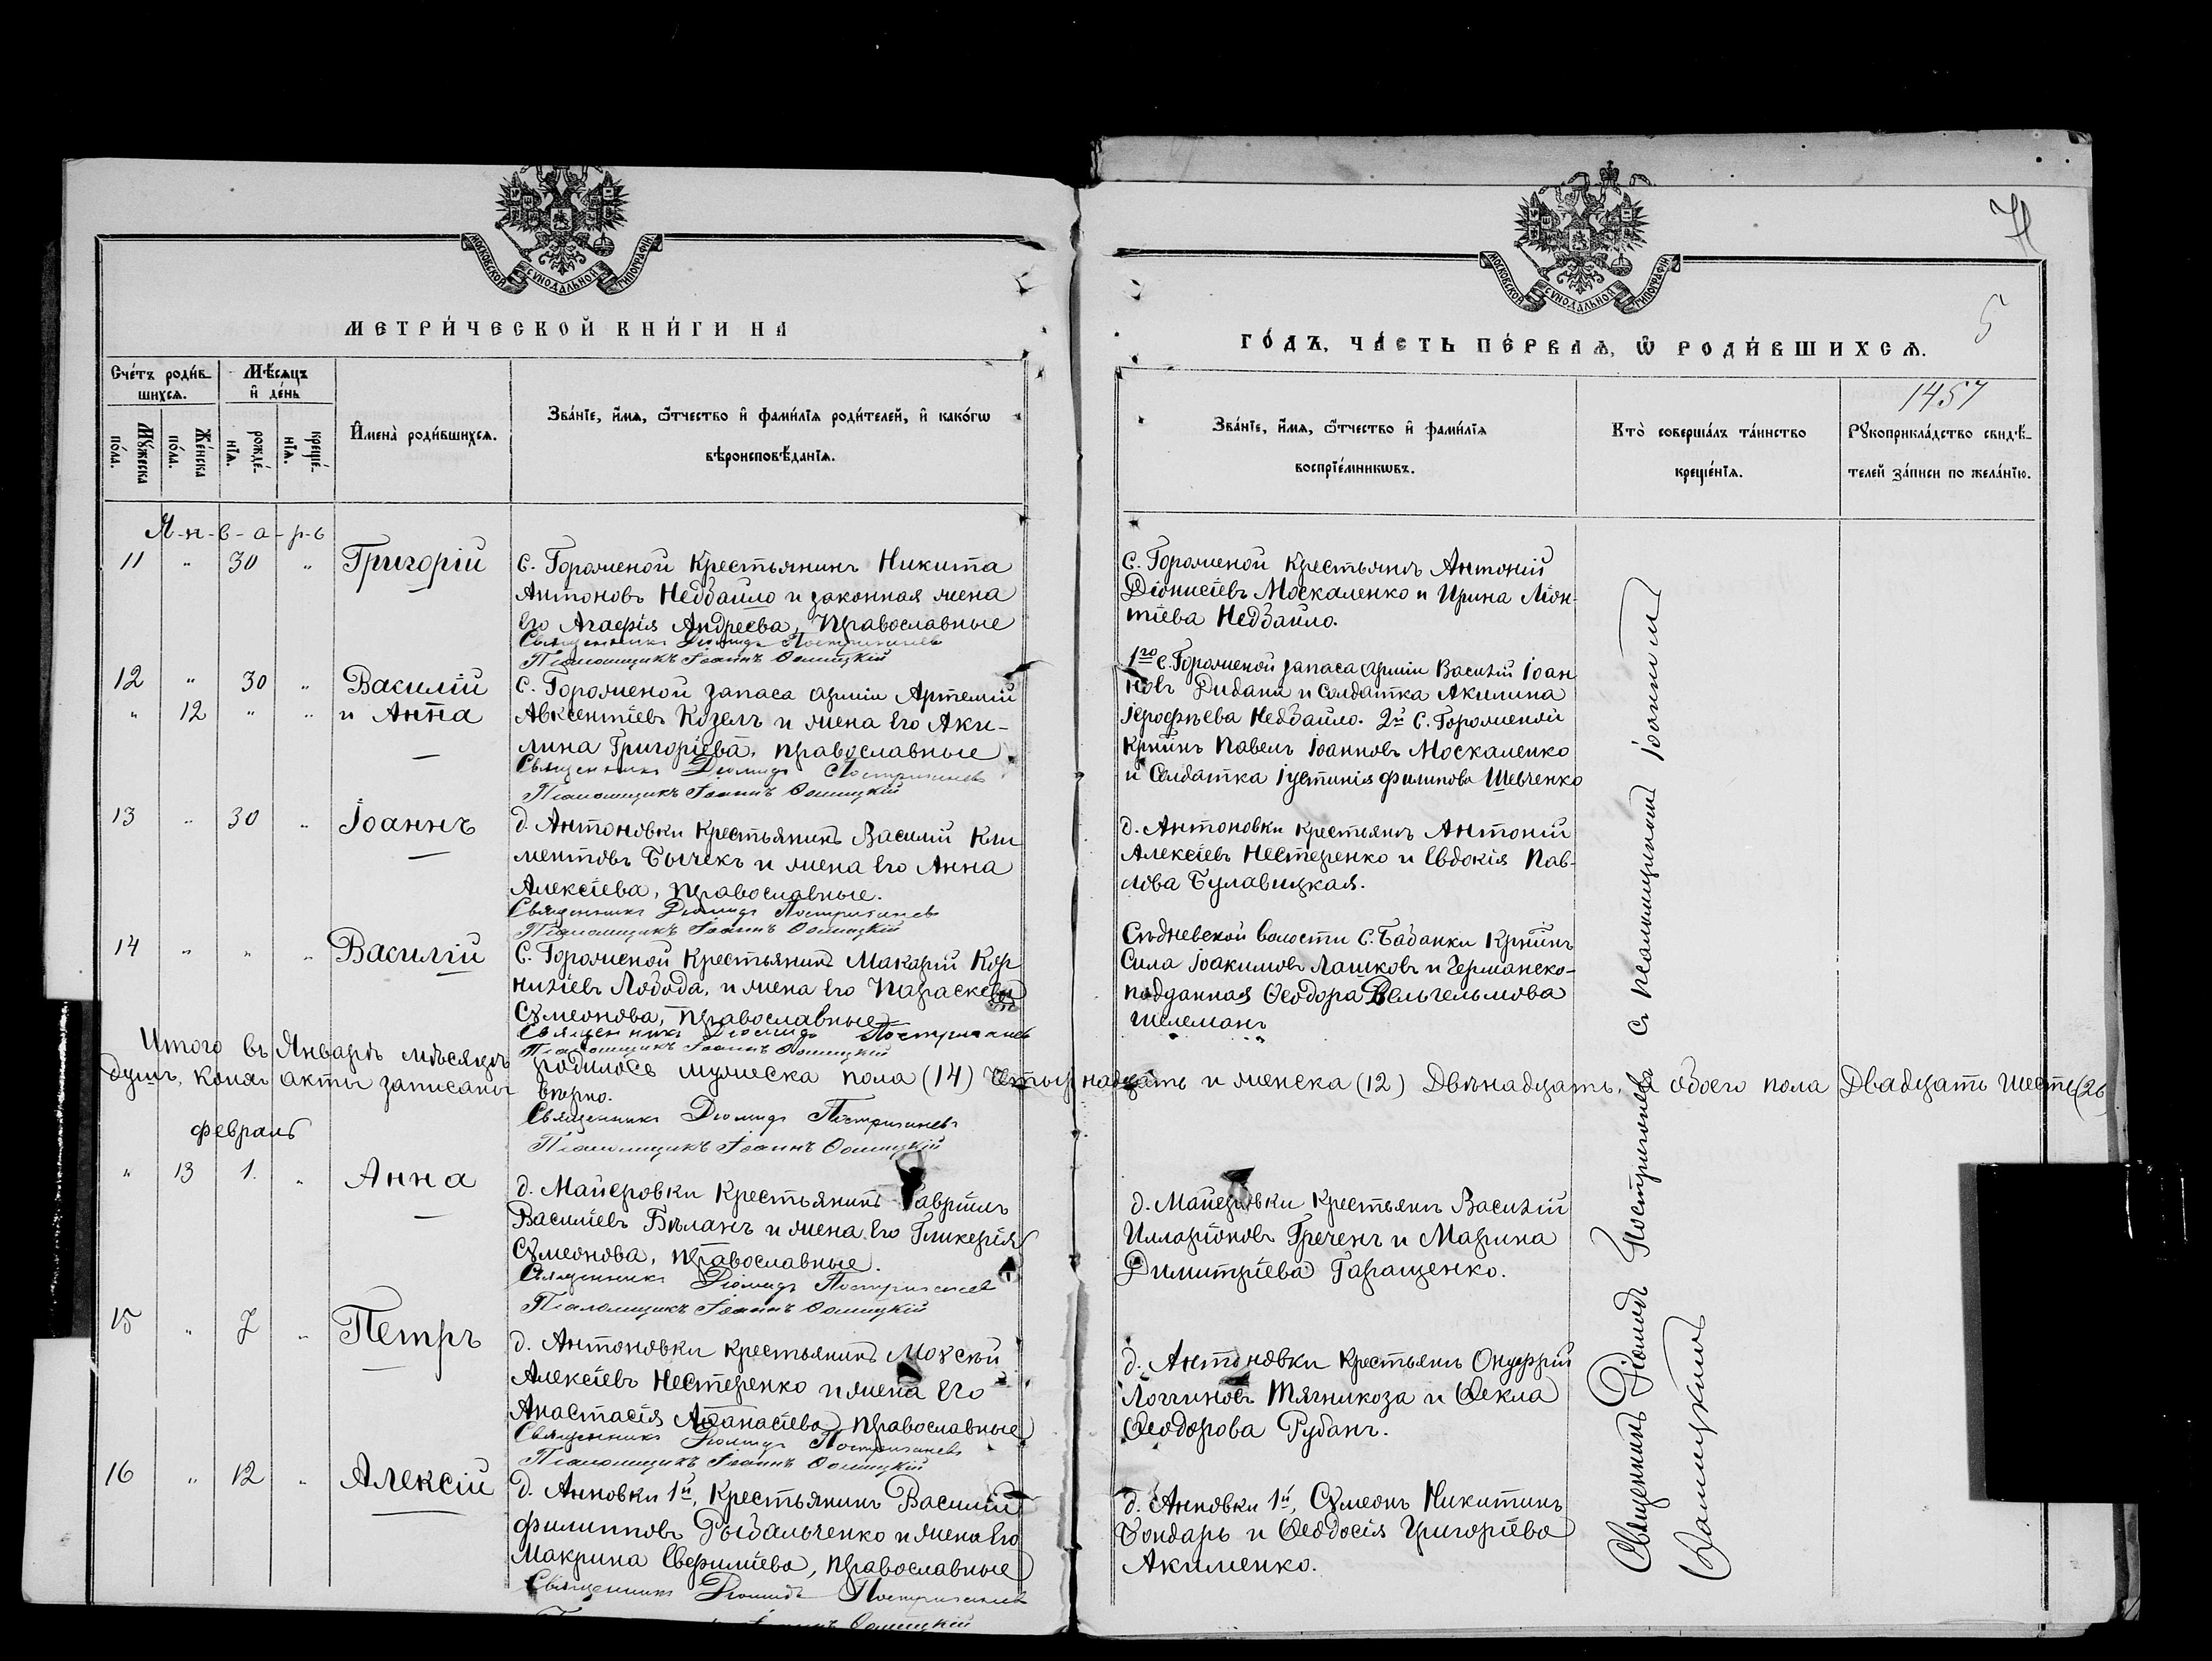 МОСКОВСКОЙ СѴНОДАЛЬНОЙ ТИПОГРАФІИ
МЕТРИ́ЧЕСКОЙ КНИ́ГИ НА
Сче́тъ роди́в-
шихся.
Мѣ́сяцъ
и҆ де́нь
Мꙋ́жеска
по́ла.
Же́нска
по́ла.
рожде́-
нїѧ.
креще́-
нїѧ.
И҆мена̀ роди́вшихсѧ.
Зва́нїе, и҆́мѧ, ѻ҆́тчество и҆ фами́лїѧ роди́телей, и҆ како́гѡ
вѣроисповѣ́данїѧ.
Я-н-в-а-р-ь
11 " 30 " Григорій
с. Гороженой Крестьянинъ Никита
Антоновъ Недбайло и законная жена
его Агафія Андреева, православные
Священникъ Діомидъ Постригачевъ
Псаломщикъ Іоаннъ
12 " 30 " Василій
" 12 " " и Анна
с. Гороженой запаса арміи Артемій
Авксентіевъ Козелъ и жена его Аки-
лина Григоріева, православные
Священникъ Діомидъ Постригачевъ
Псаломщикъ Іоаннъ
13 " 30 " Іоаннъ
д. Антоновки Крестьянинъ Василій Кли
ментовъ Бычекъ и жена его Анна
Алексіева, православные.
Священникъ Діомидъ Постригачевъ
Псаломщикъ Іоаннъ
14 " " " Василій
С. Гороженой Крестьянинъ Макарій Кор
ниліевъ Лобода, и жена его Параскева
Сѵмеонова, православные
Священникъ Діомидъ Постригачевъ
Псаломщикъ Іоаннъ
Итого въ Январѣ мѣсяцѣ родилось мужеска пола (14) четырнадцать и женска (12) Двѣнадцать, а обоего пола Двадцать шесть (26)
душъ, коихъ акты записаны вѣрно.
Священникъ Діомидъ Постригачевъ
Псаломщикъ Іоаннъ
февраль
" 13 1. " Анна
д. Майеровки Крестьянинъ Гавріилъ
Василіевъ Бѣланъ и жена его Гликерія
Сѵмеонова, православные.
Священникъ Діомидъ Постригачевъ
Псаломщикъ Іоаннъ
15 " 7 " Петръ
д. Антоновки крестьянинъ Моѵсей
Алексіевъ Нестеренко и жена его
Анастасія Аѳанасіева, православные
Священникъ Діомидъ Постригачевъ
Псаломщикъ Іоаннъ
16 " 12 " Алексій
д. Анновки 1й, Крестьянинъ Василій
Филипповъ Рыбальченко и жена его
Макрина Евфиміева, православные
Священникъ Діомидъ Постригачевъ
Іоаннъ
МОСКОВСКОЙ СѴНОДАЛЬНОЙ ТИПОГРАФІИ
5
ГО́ДЪ, ЧА́СТЬ ПЕ́РВАѦ, Ѡ҆ РОДИ́ВШИХСѦ.
1457
Зва́нїе, и҆́мѧ, ѻ҆́тчество и҆ фами́лїѧ
воспрїе́мникѡвъ.
Кто̀ соверша́лъ та́инство
креще́нїѧ.
Рꙋкоприкла́дство свидѣ́-
телей за́писи по жела́нїю.
С. Гороженой Крестьянъ Антоній
Діонисіевъ Москаленко и Ирина Ліон-
тіева Недбайло.
1го с. Гороженой запаса арміи Василій Іоан
новъ Рибалка и Солдатка Акилина
Іерофѣева Недбайло. 2й С. Гороженой
Кр-нинъ Павелъ Іоанновъ Москаленко
и Солдатка Іустинія филипова Шевченко
д. Антоновки Крестьянъ Антоній
Алексіевъ Нестеренко и Евдокія Пав-
лова Булавицкая.
волости С. Бабанки Кр-нинъ
Сила Іоакимовъ Лашковъ и Германско-
подданная Ѳеодора Вельгельмова
Шелеманъ
д. Майеровки Крестьянъ Василій
Илларіоновъ Греченъ и Марина
Димитріева Гаращенко.
д. Антоновки Крестьянъ Онуфрій
Логгиновъ Тягникоза и Ѳекла
Ѳеодорова Рубанъ.
д. Анновки 1й, Сѵмеонъ Никитинъ
Бондарь и Ѳеодосія Григоріева
Акименко.
Священникъ Діомидъ Постригачевъ съ псаломщикомъ Іоанномъ